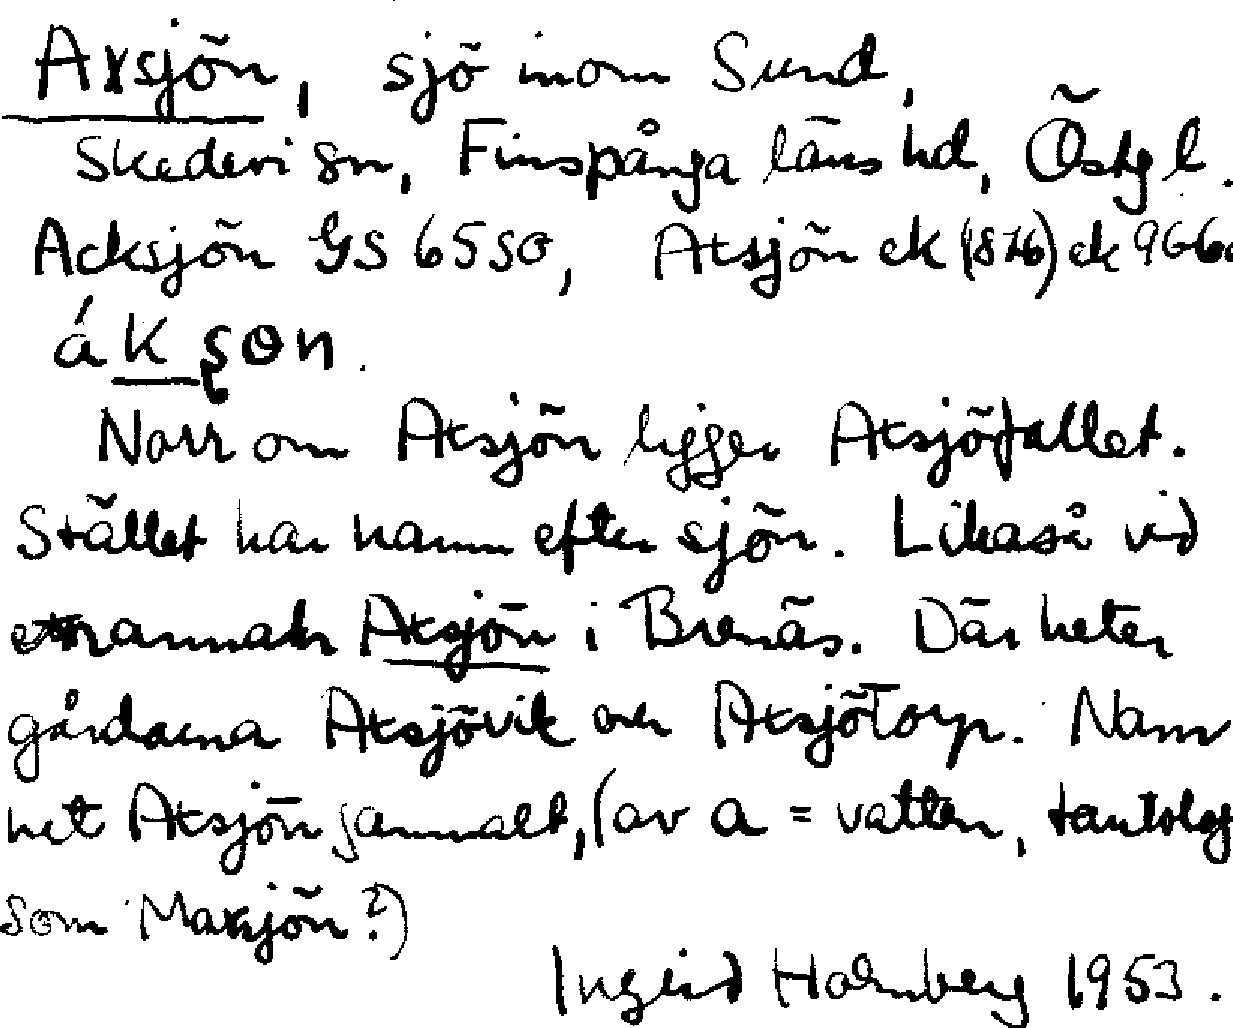 Axsjön, sjö inom Sund,
Skedevi sn, Finspånga läns hd, Östgl.
Acksjön GS 6550, Axsjön ek (1876) ek 966.
ákşon.
Norr om Axsjön ligger Axsjöfallet.
Stället har namn efter sjön. Likaså vid
annan Axsjön i Brenäs. Där heter
gårdarna Axsjövik och Axsjötorp. Nam
net Axsjön gammalt, (av a = vatten, tautolog
som Maxsjön?)
Ingrid Holmberg 1953.